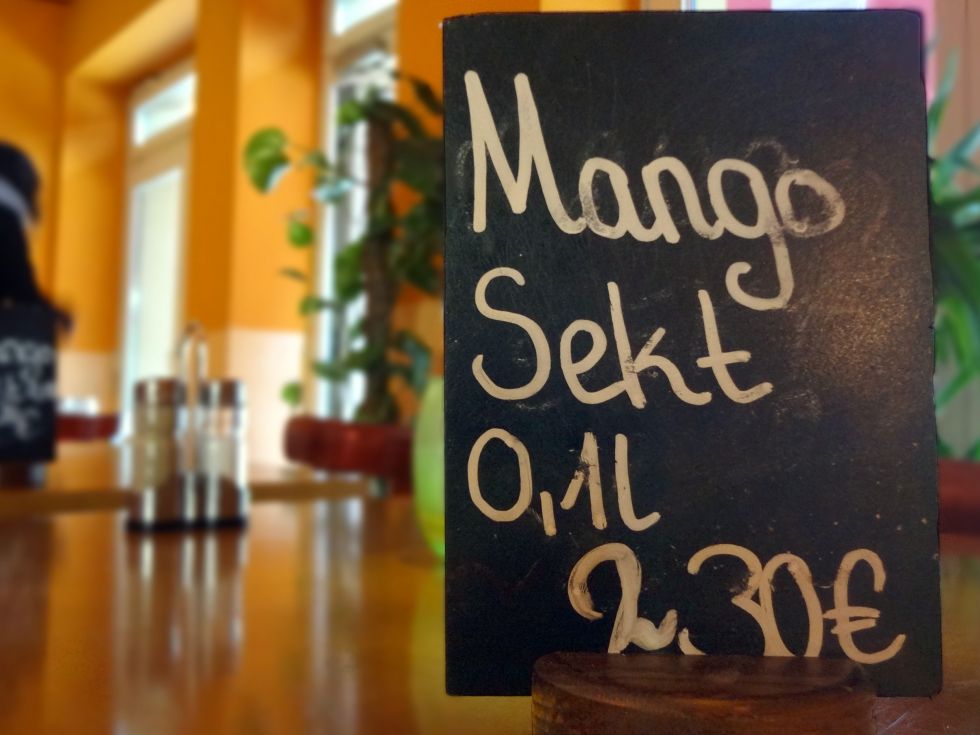 Mango
Sekt
0,1l
2,30€